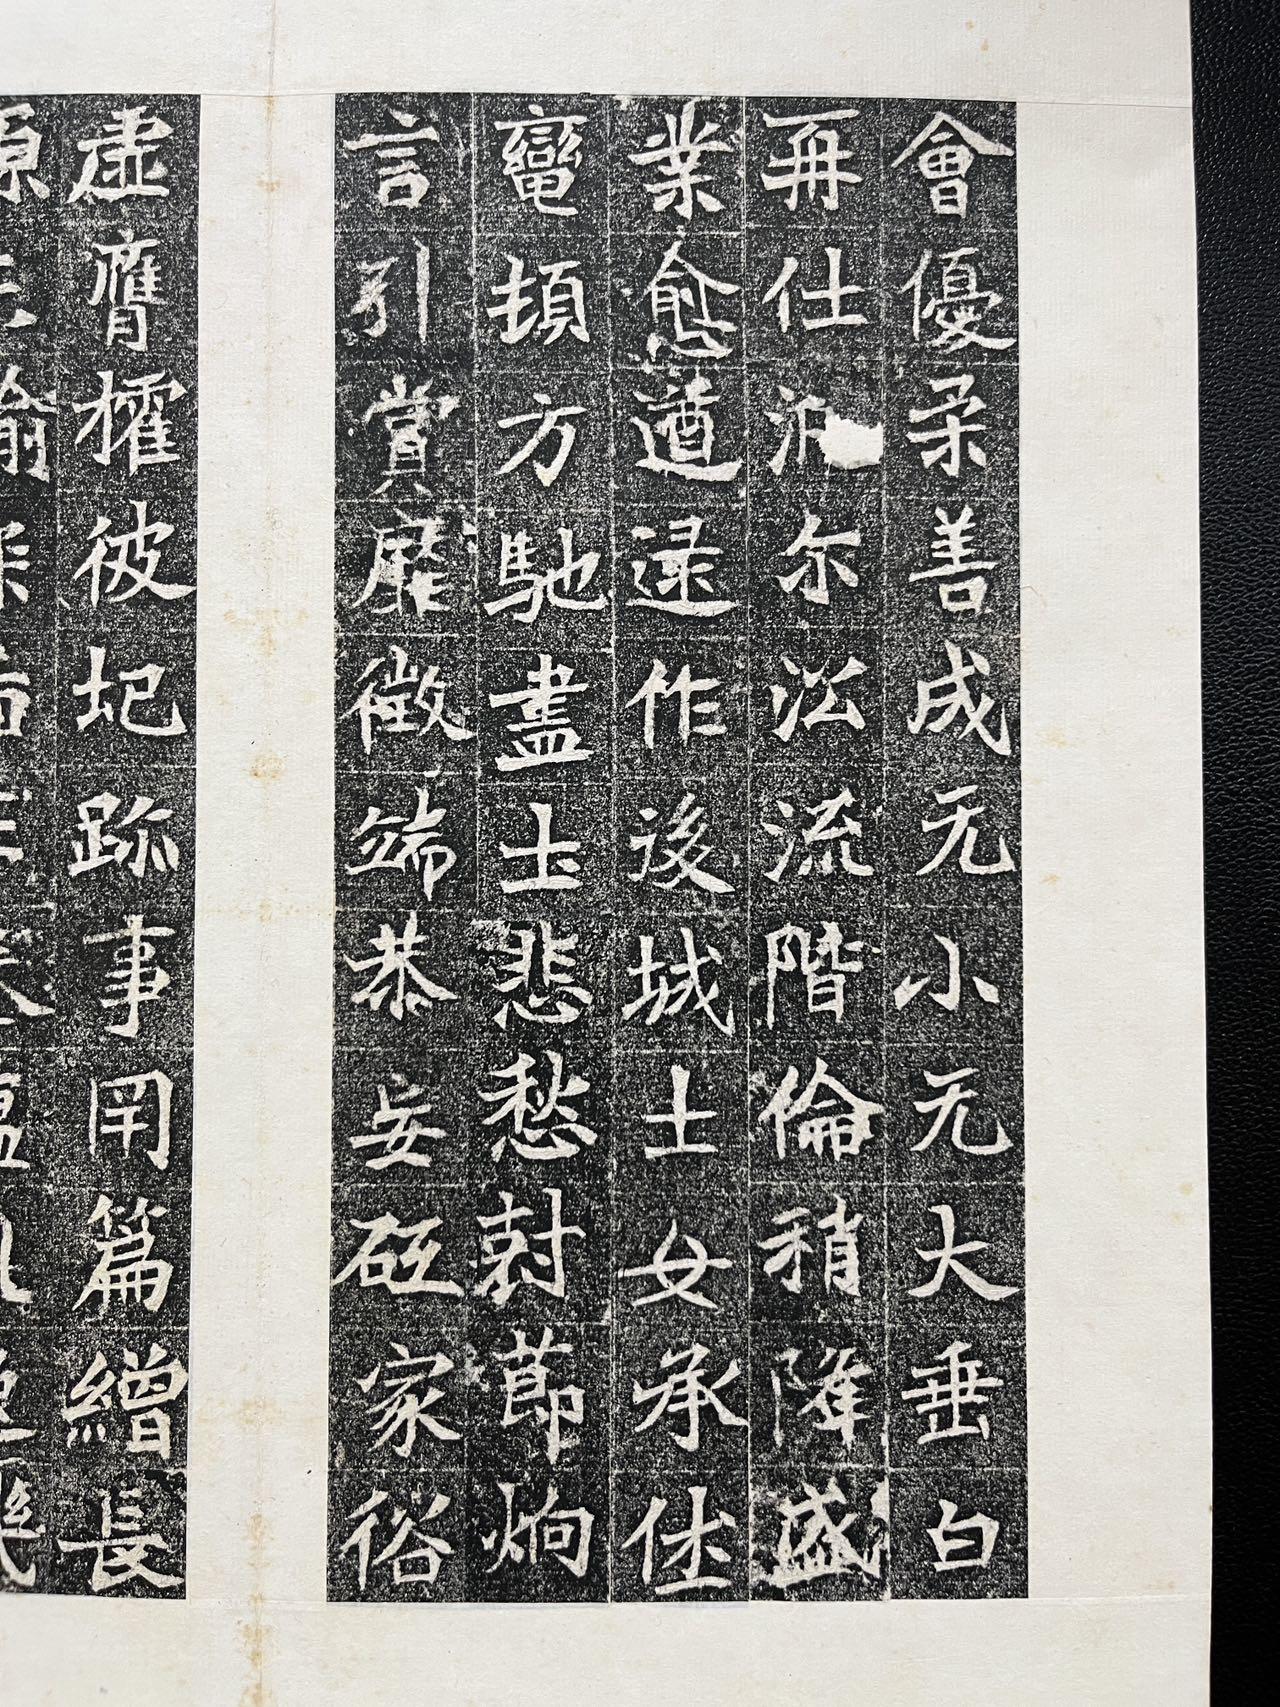 會優柔善成无小无大垂白
再仕尔沿流階倫稍降盛
業愈遒逯作後城士女承
頓方馳盡土悲愁封節炯
言引賞靡徵端恭砥家俗
虛膺擢彼圯跡事罔篇繒長